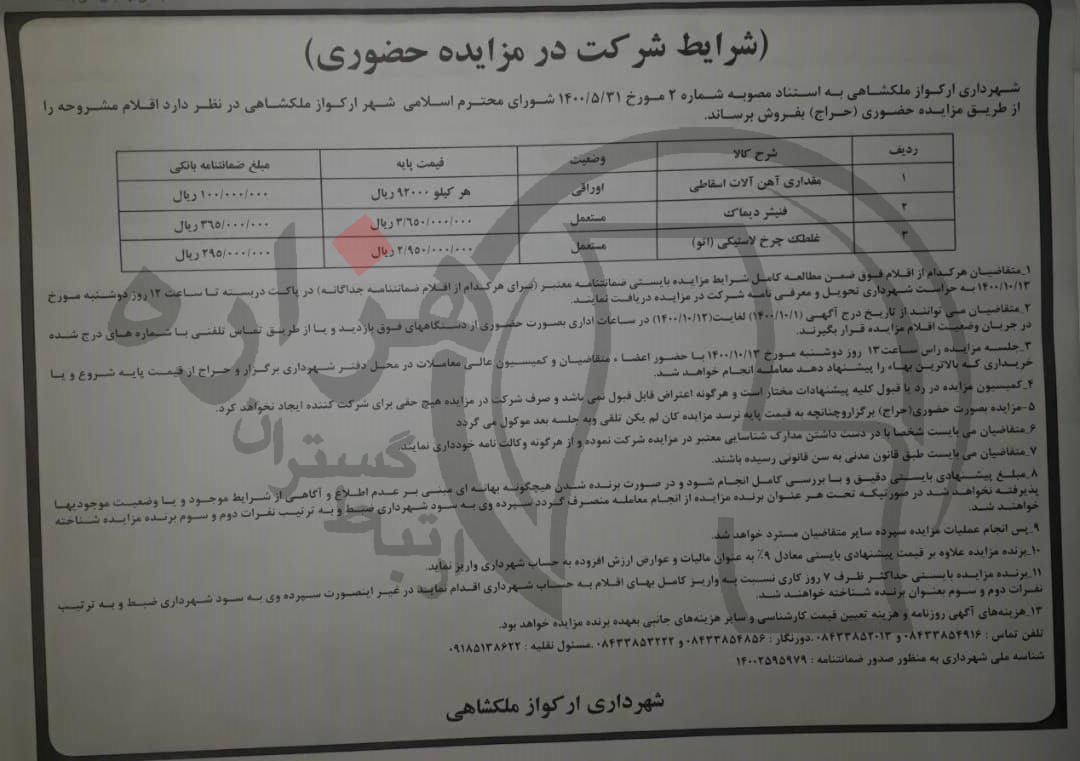 (شرایط شرکت در مزایده حضوری)
شهرداری ارکواز ملکشاهی به استناد مصوبه شماره ۲ مورخ ۱۴۰۰/۵/۳۱ شورای محترم اسلامی شهر ارکواز ملکشاهی در نظر دارد اقلام مشروحه را
از طریق مزایده حضوری (حراج) بفروش برساند.
ردیف شرح کالا وضعیت قیمت پایه مبلغ ضمانتنامه بانکی
۱ مقداری آهن آلات اسقاطی اوراقی هر کیلو ۹۲۰۰۰ ریال ۱۰۰/۰۰۰/۰۰۰ ریال
۲ فنیشر دیماک مستعمل ۳/۶۵۰/۰۰۰/۰۰۰ ریال ۳۶۵/۰۰۰/۰۰۰ ریال
۳ غلطک چرخ لاستیکی (اتو) مستعمل ۲/۹۵۰/۰۰۰/۰۰۰ ریال ۲۹۵/۰۰۰/۰۰۰ ریال
۱_متقاضیان هرکدام از اقلام فوق ضمن مطالعه کامل شرایط مزایده بایستی ضمانتنامه معتبر (برای هرکدام از اقلام ضمانتنامه جداگانه) در پاکت دربسته تا ساعت ۱۲ روز دوشنبه مورخ
۱۴۰۰/۱۰/۱۳ به حراست شهرداری تحویل و معرفی نامه شرکت در مزایده دریافت نمایند.
۲_متقاضیان می توانند از تاریخ درج آگهی (۱۴۰۰/۱۰/۱) لغایت(۱۴۰۰/۱۰/۱۲) در ساعات اداری بصورت حضوری از دستگاههای فوق بازدید و یا از طریق تماس تلفنی با شماره های درج شده
در جریان وضعیت اقلام مزایده قرار بگیرند.
۳_جلسه مزایده راس ساعت۱۳ روز دوشنبه مورخ ۱۴۰۰/۱۰/۱۳ با حضور اعضاء ، متقاضیان و کمیسیون عالی معاملات در محل دفتر شهرداری برگزار و حراج از قیمت پایه شروع و با
خریداری که بالاترین بهاء را پیشنهاد دهد معامله انجام خواهد شد.
۴_کمیسیون مزایده در رد یا قبول کلیه پیشنهادات مختار است و هرگونه اعتراض قابل قبول نمی باشد و صرف شرکت در مزایده هیچ حقی برای شرکت کننده ایجاد نخواهد کرد.
۵-مزایده بصورت حضوری(حراج) برگزاروچنانچه به قیمت پایه نرسد مزایده کان لم یکن تلقی وبه جلسه بعد موکول می گردد
۶_متقاضیان می بایست شخصا با در دست داشتن مدارک شناسایی معتبر در مزایده شرکت نموده و از هرگونه وکالت نامه خودداری نمایند.
۷_متقاضیان می بایست طبق قانون مدنی به سن قانونی رسیده باشند.
۸_مبلغ پیشنهادی بایستی دقیق و با بررسی کامل انجام شود و در صورت برنده شدن هیچگونه بهانه ای مبنی بر عدم اطلاع و آگاهی از شرایط موجود و یا وضعیت موجودیها
پذیرفته نخواهد شد در صورتیکه تحت هر عنوان برنده مزایده از انجام معامله منصرف گردد سپرده وی به سود شهرداری ضبط و به ترتیب نفرات دوم و سوم برنده مزایده شناخته
خواهند شد.
۹_پس انجام عملیات مزایده سپرده سایر متقاضیان مسترد خواهد شد.
۱۰_برنده مزایده علاوه بر قیمت پیشنهادی بایستی معادل ۹٪ به عنوان مالیات و عوارض ارزش افزوده به حساب شهرداری واریز نماید.
۱۱_برنده مزایده بایستی حداکثر ظرف ۷ روز کاری نسبت به واریز کامل بهای اقلام به حساب شهرداری اقدام نماید در غیر اینصورت سپرده وی به سود شهرداری ضبط و به ترتیب
نفرات دوم و سوم بعنوان برنده شناخته خواهند شد.
۱۳_هزینه‌های آگهی روزنامه و هزینه تعیین قیمت کارشناسی و سایر هزینه‌های جانبی بعهده برنده مزایده خواهد بود.
تلفن تماس : ۰۸۴۳۳۸۵۴۹۱۶ و ۰۸۴۳۳۸۵۲۰۱۳ .دورنگار : ۰۸۴۳۳۸۵۴۸۵۶ و ۰۸۴۳۳۸۵۳۲۲۲ .مسئول نقلیه : ۰۹۱۸۵۱۳۸۶۲۲
شناسه ملی شهرداری به منظور صدور ضمانتنامه : ۱۴۰۰۲۵۹۵۹۷۹
شهرداری ارکواز ملکشاهی
هزاره
گستران
ارتباط